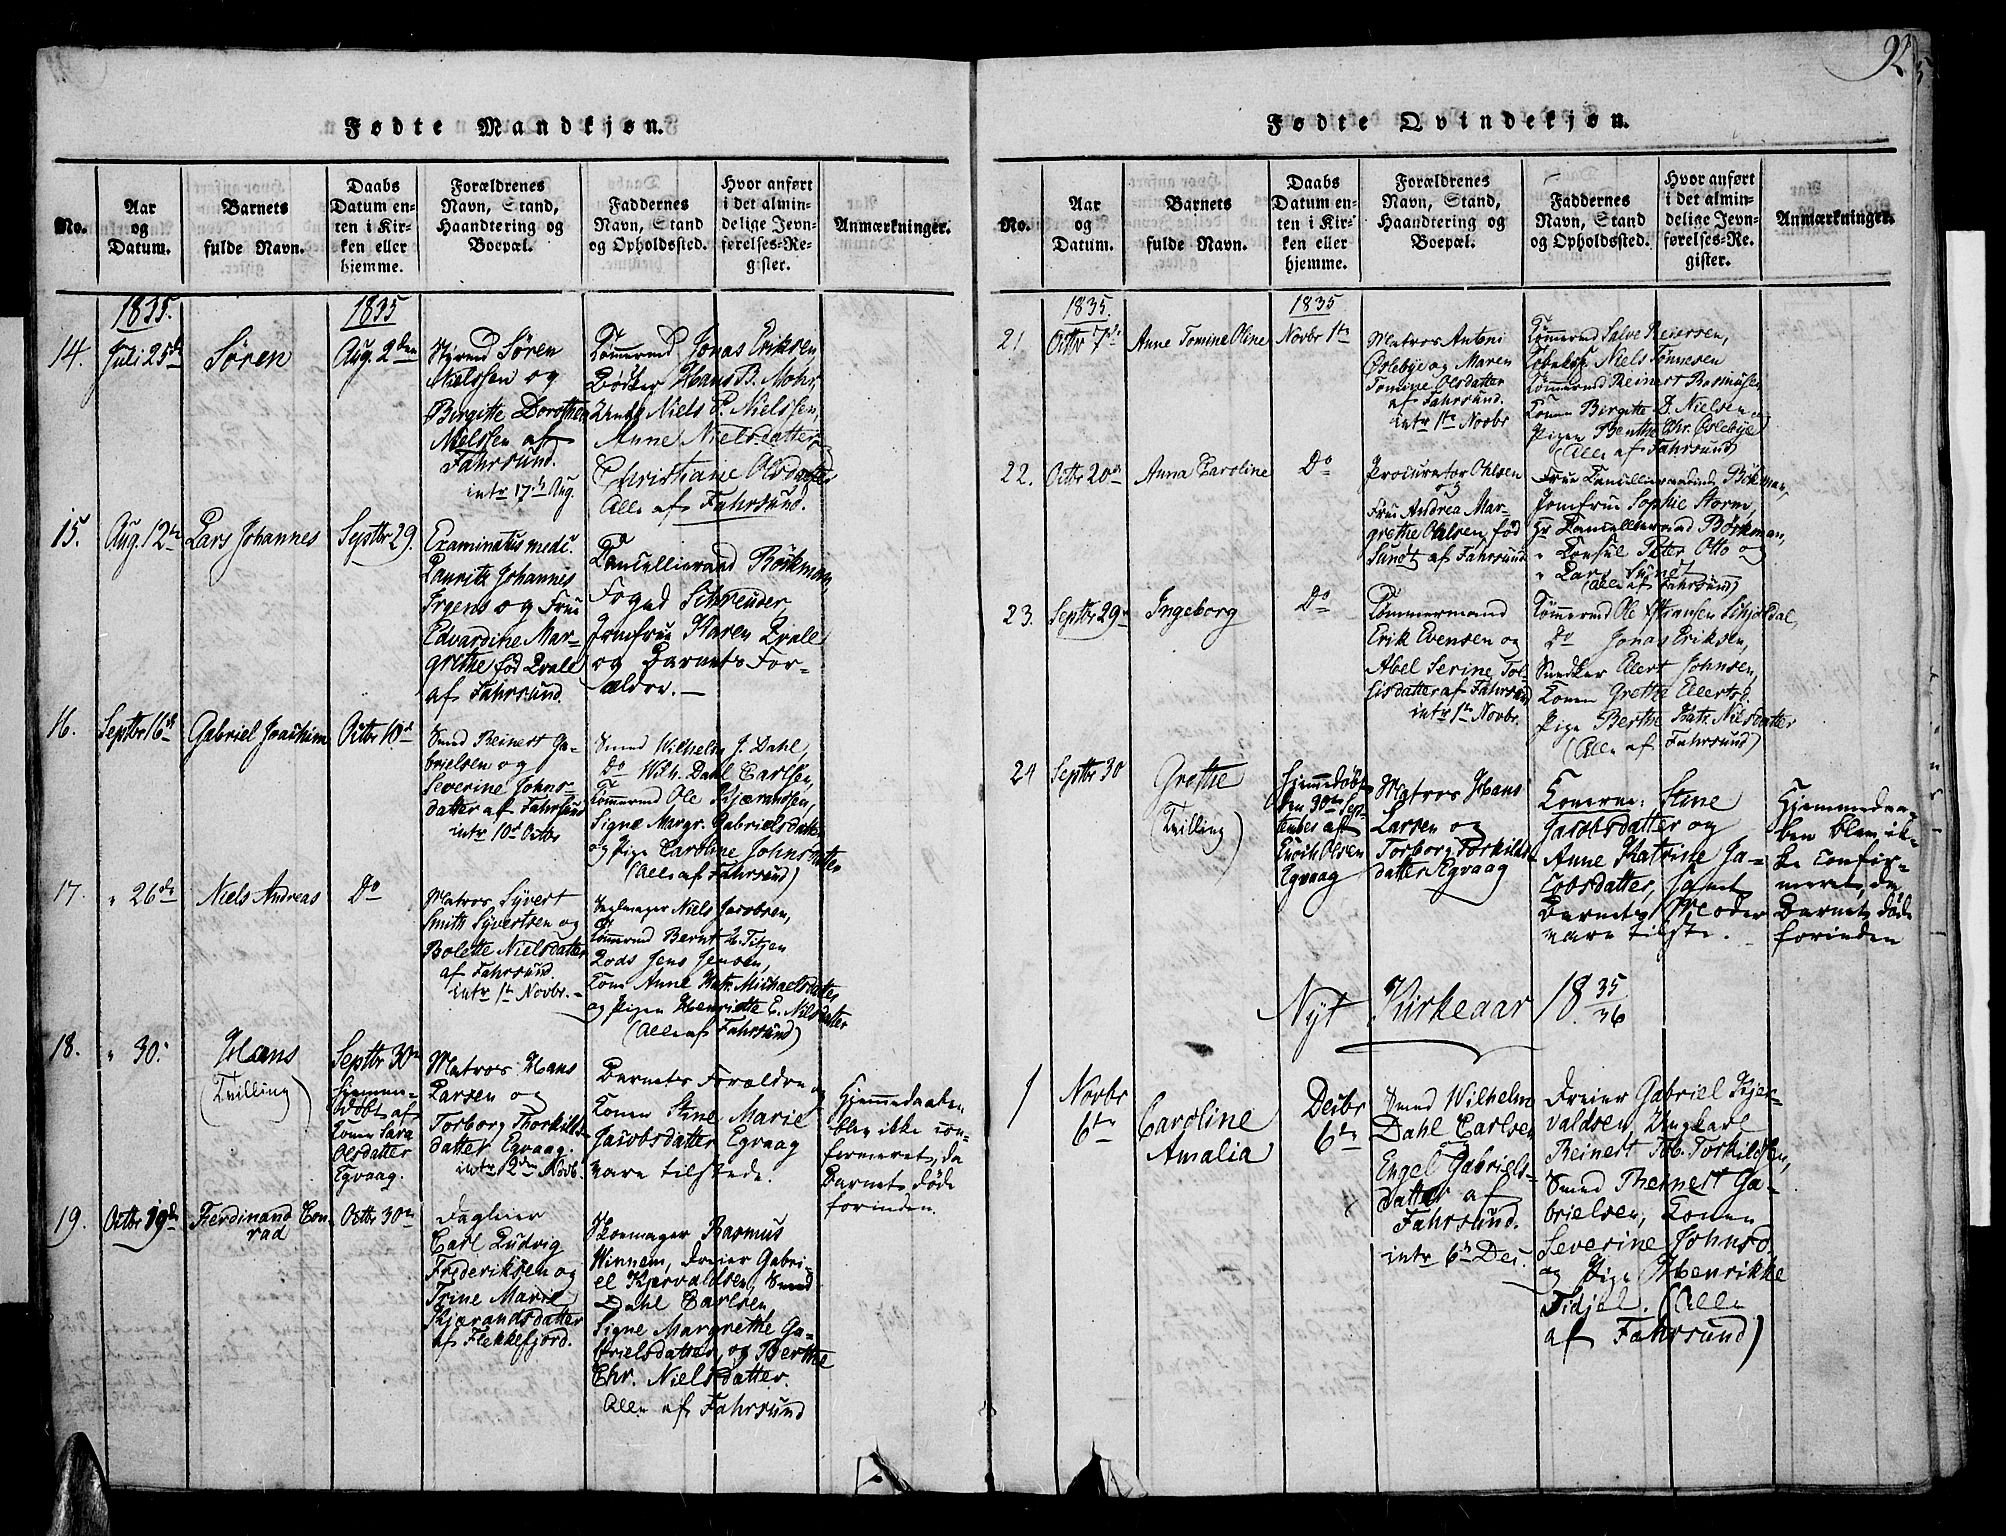 92
Fødte Mandkjøn.
No.
Aar
og
Datum.
Barnets
fulde Navn.
Daabs
Datum en-
ten i Kir-
ken eller
hjemme.
Forældrenes
Navn, Stand,
Haandtering og
Boepæl.
Faddernes
Navn, Stand
og Opholdssted.
Hvor anført
i det almin-
delige Jevn-
førelses-Re-
gister.
Anmærkninger.
1835.
1835
14.
Juli 25de
Søren
Aug. 2den
Styrmd Søren
Nielssen og
Birgitte Dorothea
Nielssen af
Fahrsund.
intr 17de Aug.
Tømermd Jonas Eriksen,
Bødker Hans B. Mohr,
Niels P. Nielssen,
Anne Nielsdatter,
Christiane Olsdatter
Alle af Fahrsund.
15.
Aug. 12te
Lars Johannes
Septbr 29.
Examinatus medc.
Lauritz Johannis
Irgens og Frue
Edvardine Mar-
grethe fød Qvale
af Fahrsund.
Cancelliraad Börkman,
Foged Schreuder,
Jomfrue Karen Qvale
og Barnets For-
ældre. —
16.
Septbr 16de
Gabriel Joachim
Octbr 10d
Smed Reinert Ga-
brielsen og
Severine Johns-
datter af Fahrsund
intr 10d Octbr
Smed Wilhelm J. Dahl,
Do Wilh. Dahl Carlsen,
Tømermd Ole Kjærandsen,
Signe Margr. Gabrielsdatter
og Pige Caroline Johnsdatter
(Alle af Fahrsund)
17.
" 26de
Niels Andreas
Do
Matros Syvert
Smith Syvertsen og
Bolette Nielsdatter
af Fahrsund.
intr 1te Novbr. -
Seglmager Niels Jacobsen,
Tømermd Bernt H. Titjen
Lods Jens Jensen,
Kone Anne Katr. Michaelsdatter
og Pigen Henriette E. Nilsdatter
(Alle af Fahrsund)
18.
" 30.
Hans
(Tvilling)
Septbr 30te
Hjemme-
døbt af
Konen Sara
Olsdatter
Egvaag.
Matros Hans
Larsen og
Torborg Thorkilds-
datter Egvaag.
intr 2den Novb.
Barnets Forældre og
Konen Stine Marie
Jacobsdatter Egvaag
vare tilstede.
Hjemmedaaben
blev ikke con-
firmeret, da
Barnet døde
forinden.
19.
Octbr 19de
Ferdinand Con-
rad
Octbr 30te
Dagleier
Carl Ludvig
Frideriksen og
Trine Marie
Kjærandsdatter
af Flekkefjord.
Skoemager Rasmus
Winnem, Dreier Gabri-
el Kjervaldsen, Smed
Dahl Carlsen
Signe Margrethe Ga-
brielsdatter, og Berthe
Chr. Nielsdatter.
Alle af Fahrsund
Fødte Qvindekjøn.
No.
Aar
og
Datum.
Barnets
fulde Navn.
Daabs
Datum en-
ten i Kir-
ken eller
hjemme.
Forældrenes
Navn, Stand,
Haandtering og
Boepæl.
Faddernes
Navn, Stand
og Opholdssted.
Hvor anført
i det almin-
delige Jevn-
førelses-Re-
gister.
Anmærkninger.
1835.
1835
21.
Octbr 7de
Anne Tomine Oline
Novbr 1te
Matros Antoni
Oslebye og Maren
Tomine Olsdatter
af Fahrsund.
intr 1te Novbr
Tømermd Salve Reiersen,
Niels Tønnesen
Tømermd Reinert Rasmussen
Konen Birgitte D. Nielsen og
Pigen Benthe Chr. Oslebye
(Alle af Fahrsund)
22.
Octbr 20de
Anna Caroline
Do
Procurator Ohlsen
og
Frue Andrea Mar-
grethe Ohlsen, fød
Sundt af Fahrsund
Frue Cancelliraadinde Börkman,
Jomfrue Sophie Storm,
Hr Cancelliraad Börkman,
" Consul Peter Otto og
" Lars Sundt
(Alle af Fahrsund)
23.
Septbr 29de
Ingeborg
Do
Tømmermand
Erik Evensen og
Abel Serine Tol-
lisdatter af Fahrsund
intr 1te Novbr.
Tømermd Ole Stiansen Schjoldal,
Do Jonas Eriksen,
Snedker Ellert Johnsen,
Konen Grethe Ellertsd.
Pige Berthe Katr. Nilsdatter
(Alle af Fahrsund)
24
Septbr 30
Grethe
(Tvilling)
Hjemmedøbt
den 30te Sep-
tember af
Olsen
Egvaag
Matros Hans
Larsen og
Torborg Torkilds-
datter Egvaag
Konerne: Stine
Jacobsdatter og
Anne Katrine Ja-
cobsdatter, samt
Barnets Moder
vare tilste.
Hjemmedaa-
ben blev ik-
ke confir-
meret, da
Barnet døde
forinden
Nyt Kirkeaar 1835/36
1
Novbr
6te
Caroline
Amalia
Decbr
6te
Smed Wilhelm
Dahl Carlsen
og
Engel Gabriels-
datter af
Fahrsund.
intr 6te Dec.
Dreier Gabriel Kjer-
valdsen, Ungkarl
Reinert Tob. Torkildsen,
Smed Reinert Ga-
brielsen, Konen
Severine Johnsd.
og Pige Henrikke
Tidjel. (Alle
af Fahrsund)